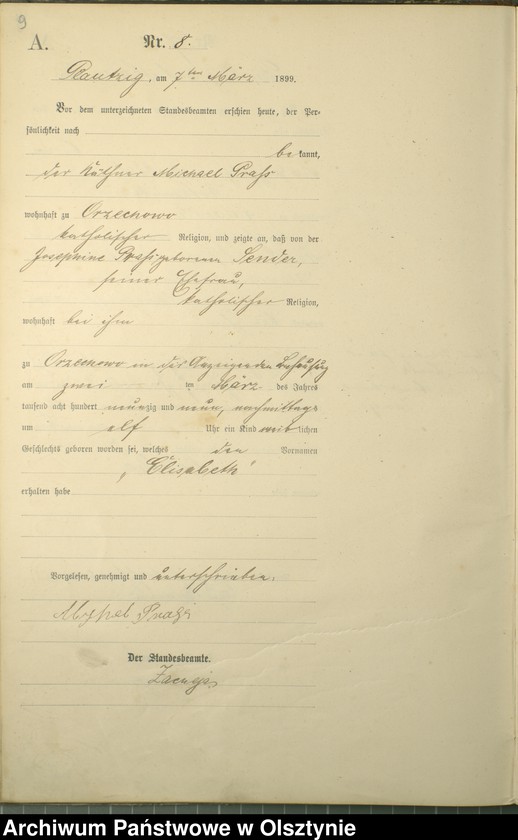 9
A. Nr. 8.
Plautzig, am 7ten März 1899.
Vor dem unterzeichneten Standesbeamten erschien heute, der Per-
sönlichkeit nach
bekannt,
der Käthner Michael Prass
wohnhaft zu Orzechowo
katholischer Religion, und zeigte an, daß von der
Josephine geborenen Sender,
seiner Ehefrau,
katholischer Religion,
wohnhaft bei ihm
zu Orzechowo in der Behausung
am zwei ten März des Jahres
tausend acht hundert neunzig und neun, nachmittags
um elf Uhr ein Kind weiblichen
Geschlechts geboren worden sei, welches den Vornamen
„Elisabeth"
erhalten habe
Vorgelesen, genehmigt und unterschrieben.
Der Standesbeamte.
Archiwum Państwowe w Olsztynie